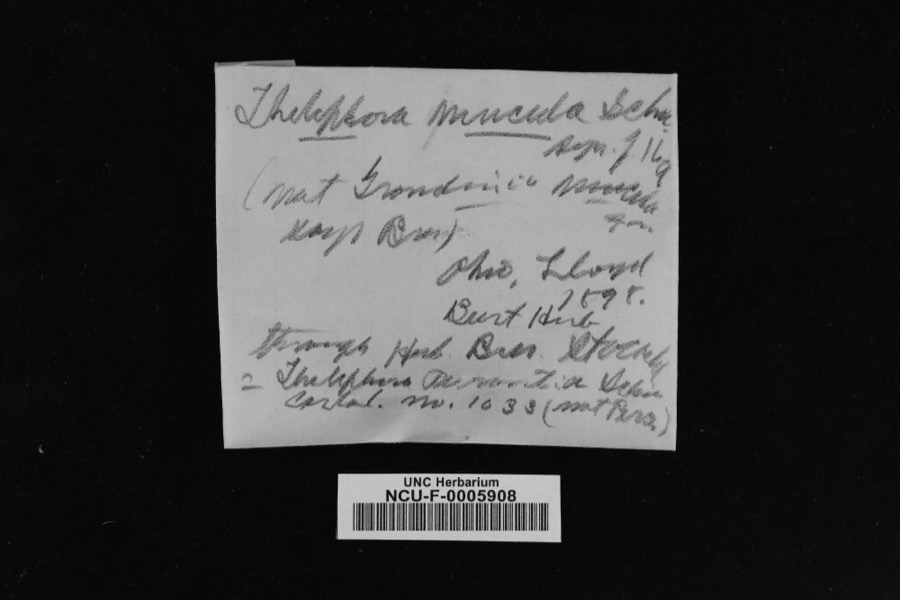 Thelephora mucida Schw.
(not Grandinia mucida
Ohio, Lloyd
1898.
Burt Herb
through Herb. Bres. Stockh
= Thelephora Schw
no. 1033 (not Pers.)
UNC Herbarium
NCU-F-0005908